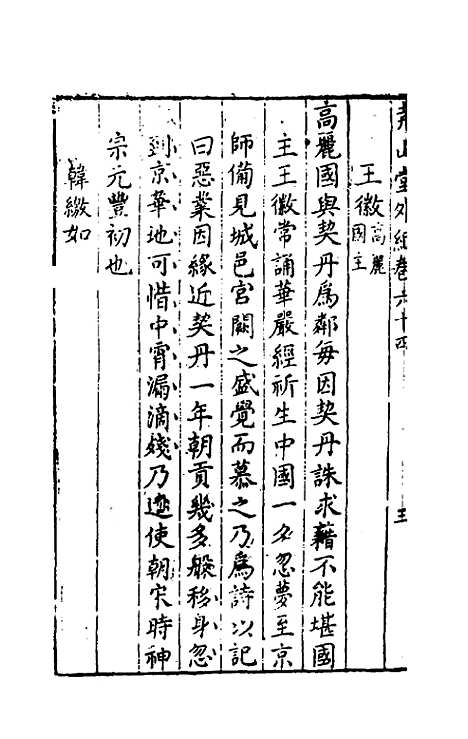 堯山堂外紀卷六十四 五
王徽高麗國主
高麗國與契丹爲鄰每因契丹誅求藉不能堪國
主王徽常誦華嚴經祈生中國一夕忽夢至京
師備見城邑宮闕之盛覺而慕之乃爲詩以記
曰惡業因緣近契丹一年朝貢幾多般移身忽
到京華地可惜中宵漏滴殘乃遣使朝宋時神
宗元豐初也
韓繳如